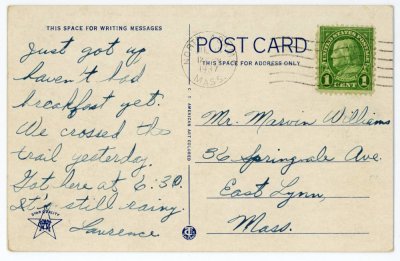 THIS SPACE FOR WRITING MESSAGES
Just got up
haven't had
breakfast yet.
We crossed the
trail yesterday.
Got here at 6:30.
It's still rainy.
Lawrence
C. T. AMERICAN ART COLORED
POST CARD
THIS SPACE FOR ADDRESS ONLY
NORTH
MASS.
1 CENT 1
Mr. Marvin Williams
56 Springdale Ave.
East Lynn,
Mass.